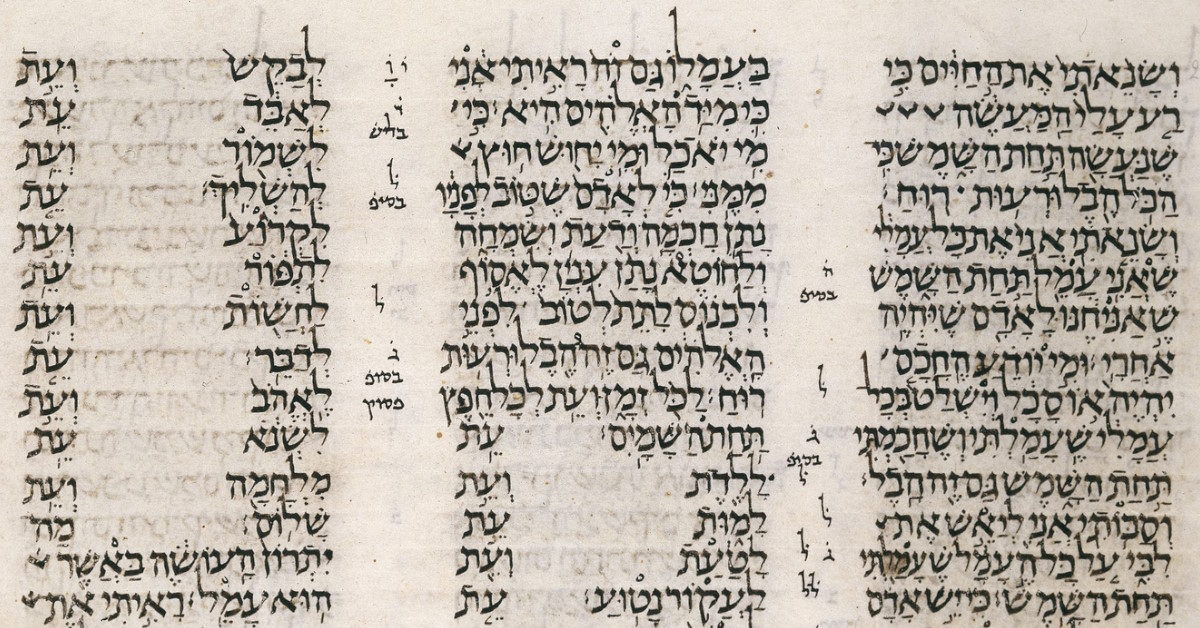 ושנאתי את החיים כי
רע עלי המעשה
שנעשה תחת השמש כי
הכל הבל ורעות רוח
ושנאתי אני את כל עמלי
שאני עמל תחת השמש
שאניחנו לאדם שיהיה
אחרי ומי יודע החכם
יהיה או סכל וישלט בכל
עמלי שעמלתי ושחכמתי
תחת השמש גם זה הבל
וסבותי אני ליאש את
לבי על כל העמל שעמלתי
תחת השמש כי יש אדם
ה
בסיפ
ל
ב
בסיפ
ל
ל
ב ל
בעמלו גם זה ראיתי אני
כי מיד האלהים היא כי
מי יאכל ומי יחוש חוץ
ממני כי לאדם שטוב לפניו
נתן חכמה ודעת ושמחה
ולחוטא נתן ענין לאסוף
ולכנוס לתת לטוב לפני
האלהים גם זה הבל ורעות
רוח לכל זמן ועת לכל חפץ
תחת השמים עת
ללדת ועת
למות עת
לטעת ועת
לעקור נטוע עת
בליש
ל
בסיפ
ל
ב
בסיפ
פסוק
לבקש ועת
לאבד עת
לשמור ועת
להשליך עת
לקרוע ועת
לתפור עת
לחשות ועת
לדבר עת
לאהב ועת
לשנא עת
מלחמה ועת
שלום מה
יתרון העושה באשר
הוא עמל ראיתי את